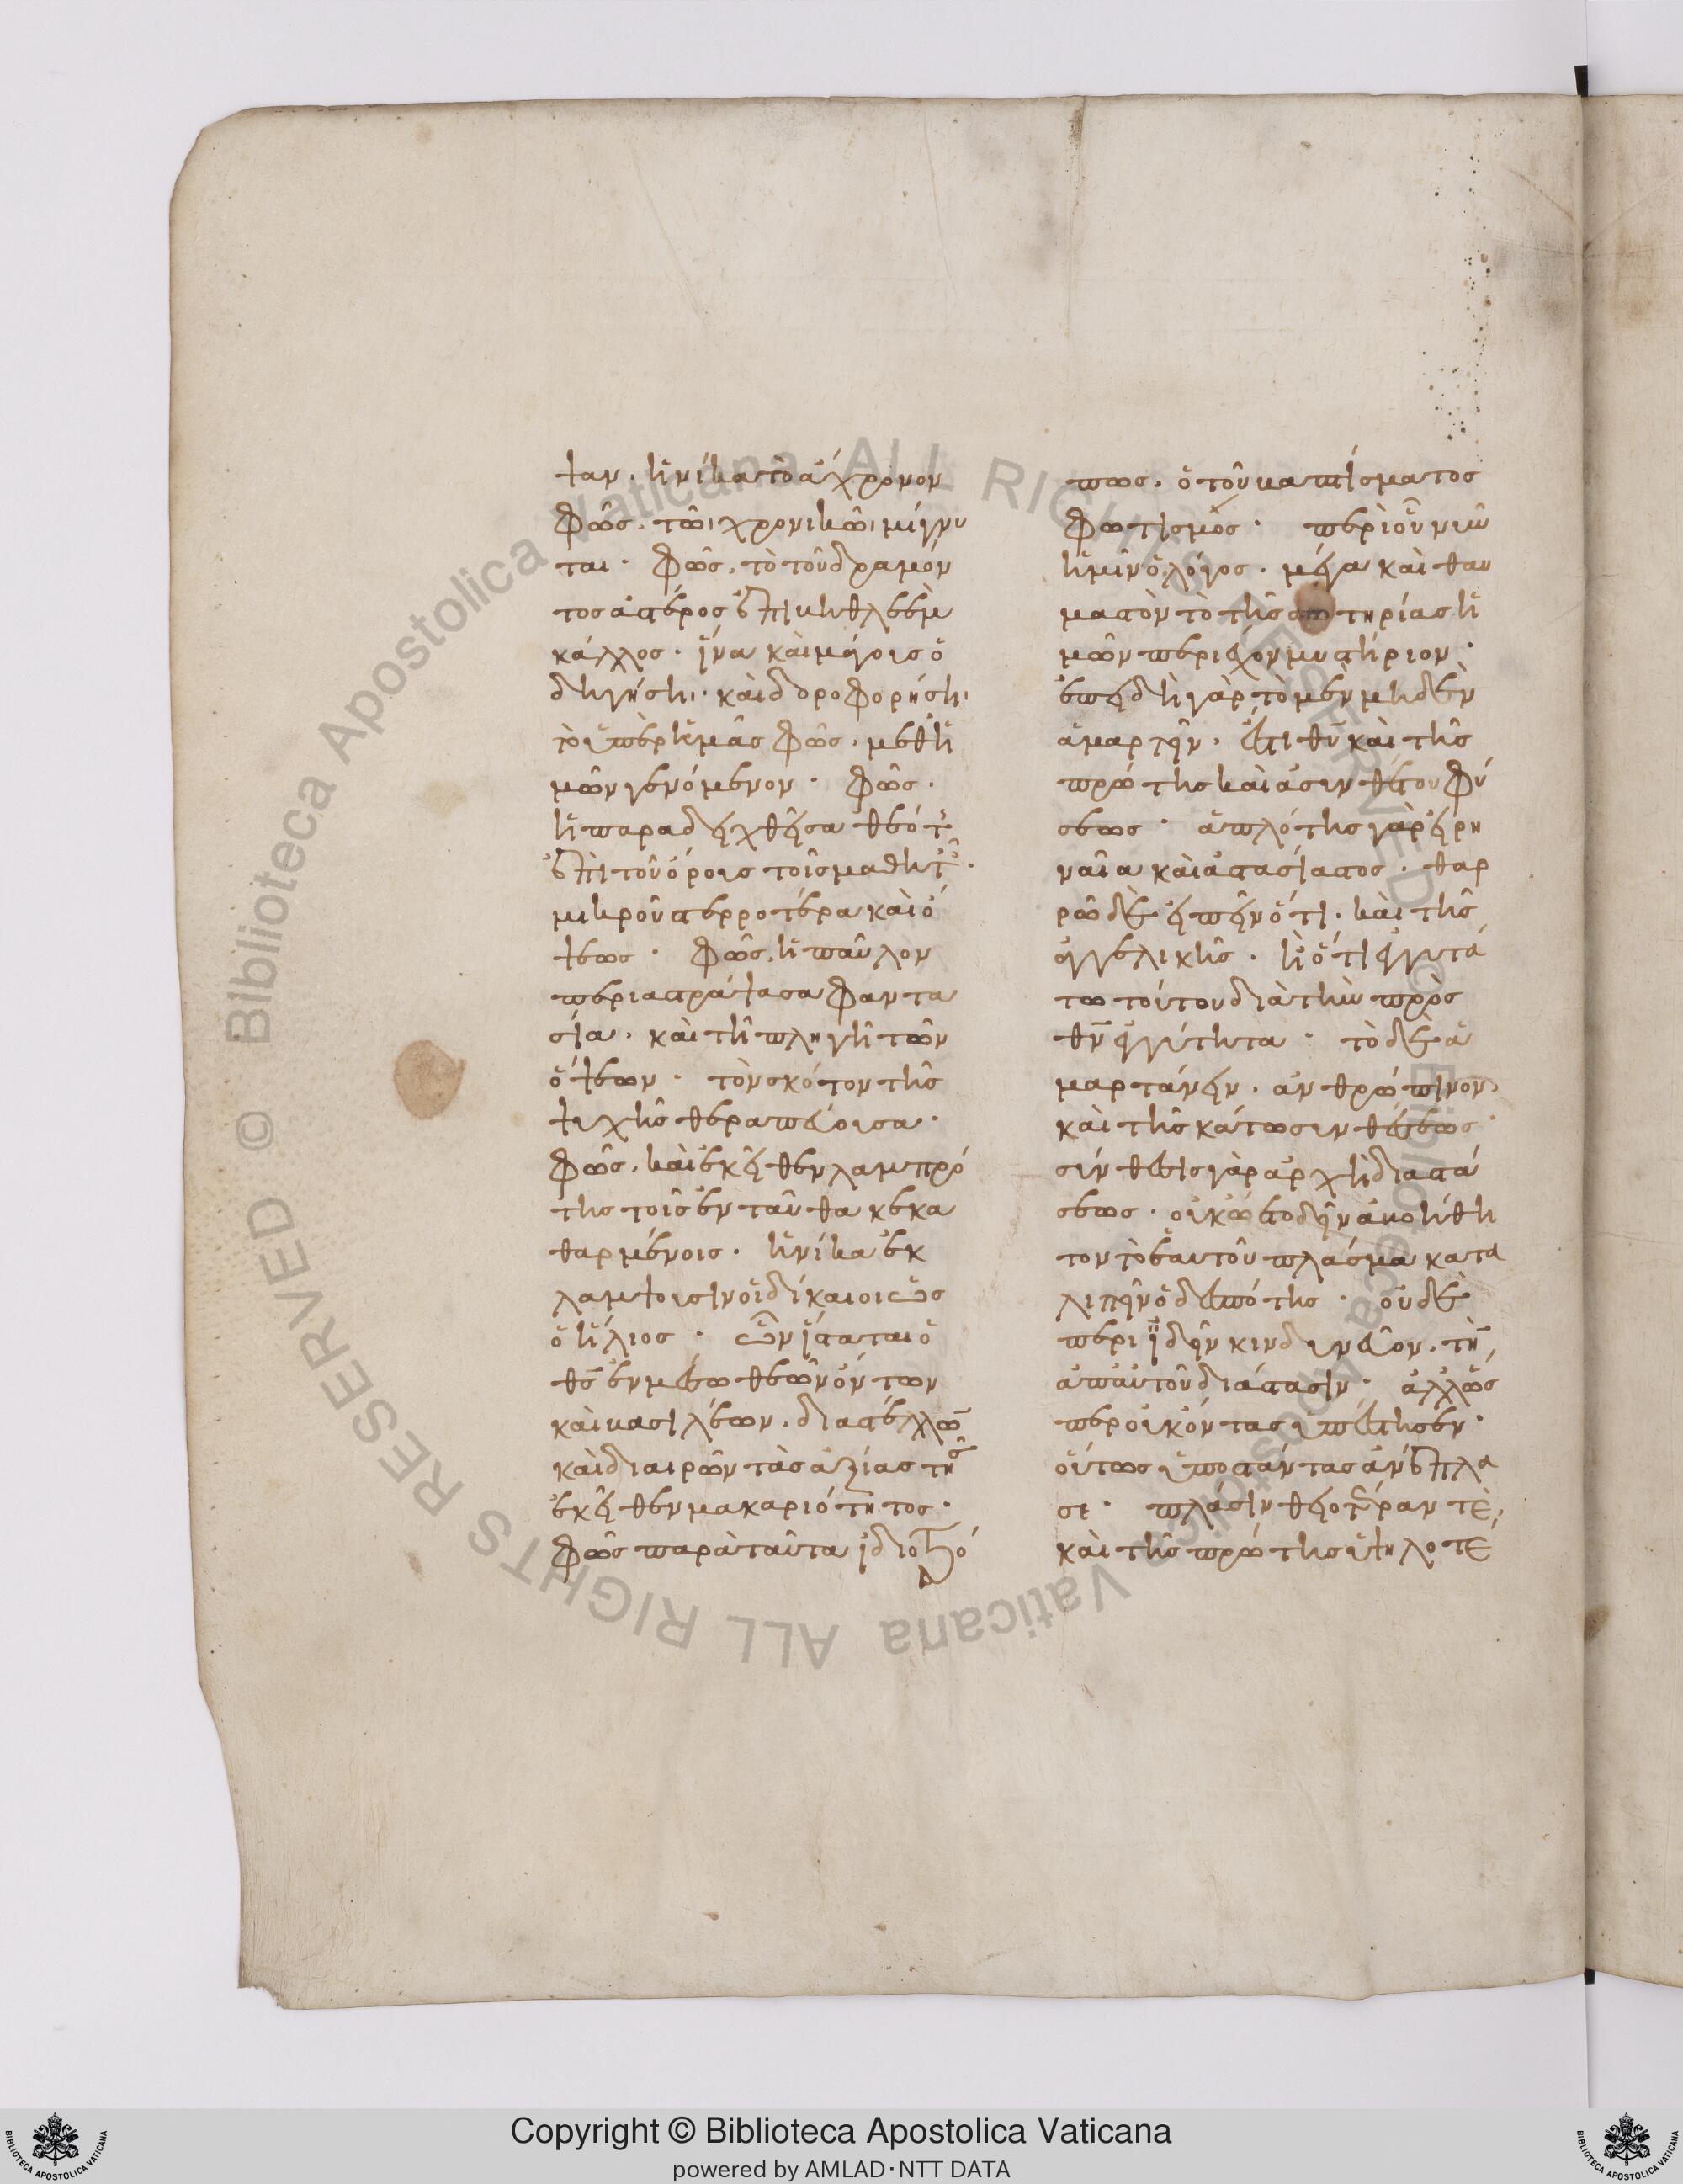 ψαν. ἡνίκα τὸ ἄχρονον
φῶς. τῶι χρονικῶι μίγνυ
ται. φῶς, τὸ τοῦ δραμόν
τος ἀστέρος ἐπι βηθλεὲμ
κάλλος. ἵνα καὶ μάγοις ὁ
δηγήσηι. καὶ δορυφορήσηι
τὸ ὑπὲρ ἡμᾶς φῶς. μεθ ἡ
μῶν γενόμενον. φῶς.
ἡ παραδειχθεῖσα θεότης
ἐπὶ τοῦ ὄρους τοῖς μαθηταῖς.
μικροῦ στερροτέρα καὶ ὄ
ψεως. φῶς, ἡ παῦλον
περιαστράψασα φαντα
σία. καὶ τῆ πληγῆ τῶν
ὄψεων. τὸν σκότον τῆς
ψυχῆς θεραπεύουσα.
φῶς. καὶ ἐκεῖθεν λαμπρό
της τοῖς ἐνταῦθα κεκα
θαρμένοις. ἡνίκα ἐκ
λάμψουσιν οἱ δίκαιοι ὡς
ὁ ἥλιος. ὧν ἵσταται ὁ
θς ἐν μέσω θεῶν ὄντων
καὶ βασιλέων. διαστέλλων
καὶ διαιρῶν τὰς ἀξίας τῆς
ἐκεῖθεν μακαριότητος.
φῶς παρὰ ταῦτα ἰδιοτρό
πως. ὁ τοῦ βαπτίσματος
φωτισμός. περὶ οὗ νῦν
ἡμῖν ὁ λόγος. μέγα καὶ θαυ
μαστὸν τὸ τῆς σωτηρίας ἡ
μῶν περιέχον μυστήριον.
ἐπειδὴ γὰρ τὸ μὲν μηδὲν
ἁμαρτεῖν. ἐστι θυ καὶ τῆς
πρώτης καὶ ἀσυνθέτου φύ
σεως. ἁπλότης γὰρ εἰρη
ναία καὶ ἀστασίαστος. θαρ
ρῶ δὲ εἰπεῖν ὅτι. καὶ τῆς
ἀγγελικῆς. ἢ ὅτι ἐγγυτά
τω τούτου διὰ τὴν πρὸς
θν ἐγγύτητα. τὸ δὲ ἁ
μαρτάνειν. ἀνθρώπινον,
καὶ τῆς κάτω συνθέσεως.
σύνθεσις γὰρ ἀρχὴ διαστά
σεως. οὐκ ὤετο δεῖν ἀβοήθη
τον τὸ ἑαυτοῦ πλάσμα κατα
λιπεῖν ὁ δεσπότης. οὐδὲ
περιϊδεῖν κινδυνεῦον. τὴν
ἀπ αὐτοῦ διάστασιν. ἀλλ ὥς
περ οὐκ ὄντας ὑπέστησεν.
οὕτως ὑποστάντας ἀνέπλα
σε. πλάσιν θειοτέραν τὲ,
καὶ τῆς πρώτης ὑψηλοτέ